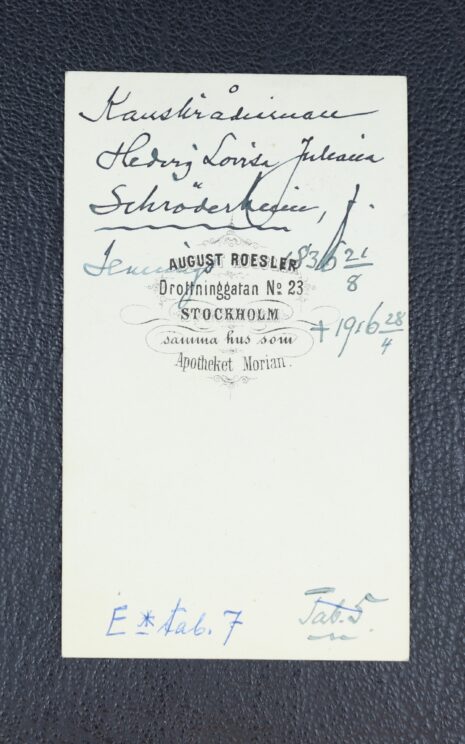 Kanslirådinnan
Hedvig Lovisa Juliana
Schröderheim, f.
Jennings 1836 21/8
AUGUST ROESLER
Drottninggatan № 23
STOCKHOLM
samma hus som
Apotheket Morian.
+ 1916 28/4
E * tab. 7
Tab. 5.